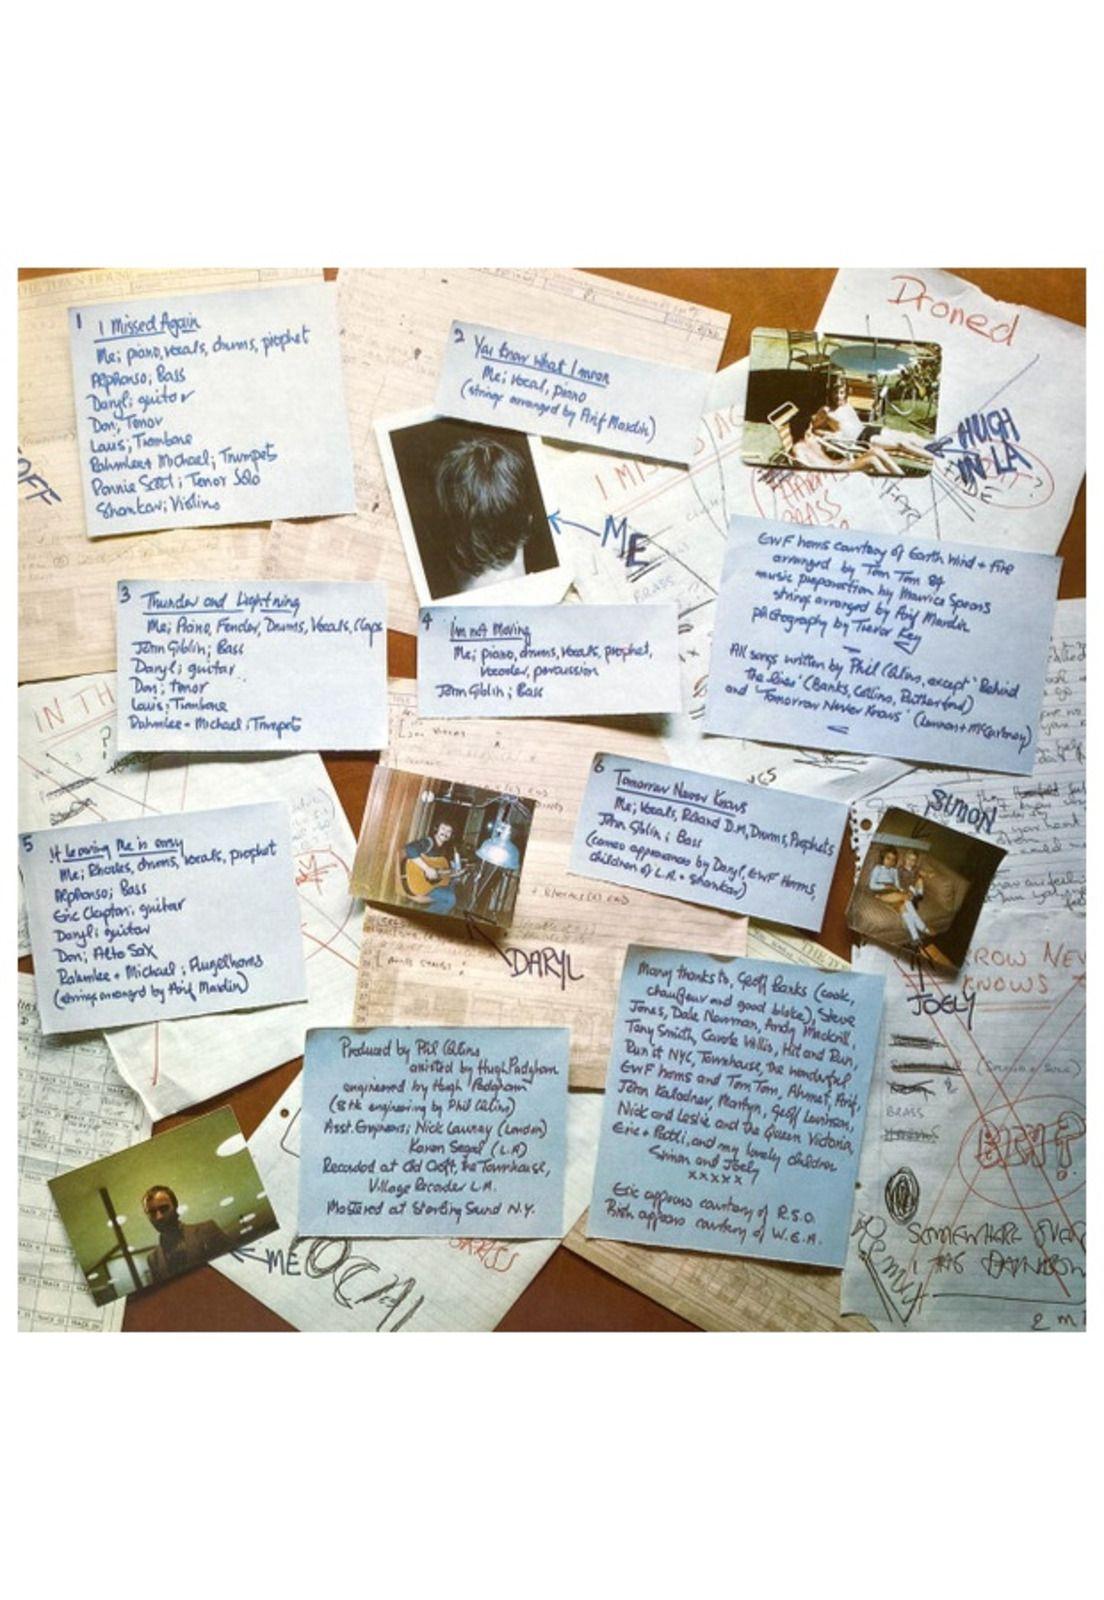 THE TOWN HOUSE
1 I Missed Again
Me; piano, vocals, drums, prophet
Alphonso; Bass
Daryl; guitar
Don; Tenor
Louis; Trombone
Rahmlee + Michael; Trumpets
Ronnie Scott; Tenor Solo
Shankar; Violins
2 You know what I mean
Me; vocal, piano
(strings arranged by Arif Mardin)
Droned
HUGH
IN LA
I MISSED AG
ME
BRASS
EWF horns courtesy of Earth Wind + Fire
arranged by Tom Tom 84
music preparation by Maurice Spears
strings arranged by Arif Mardin
photography by Trevor Key
All songs written by Phil Collins, except 'Behind
the lines' (Banks, Collins, Rutherford)
and 'Tomorrow Never Knows' (Lennon + McCartney)
3 Thunder and Lightning
Me; Piano, Fender, Drums, Vocals, Claps
John Giblin; Bass
Daryl; guitar
Don; tenor
Louis; Trombone
Rahmlee + Michael; Trumpets
4 I'm not Moving
Me; piano, drums, vocals, prophet,
vocoder, percussion
John Giblin; Bass
IN TH
5 If leaving Me is easy
Me; Rhodes, drums, vocals, prophet
Alphonso; Bass
Eric Clapton; guitar
Daryl; guitar
Don; Alto Sax
Rahmlee + Michael; Flugelhorns
(strings arranged by Arif Mardin)
6 Tomorrow Never Knows
Me; Vocals, Roland D.M, Drums, Prophets
John Giblin; Bass
(cameo appearances by Daryl, EWF Horns,
children of L.A. + Shankar)
SIMON
JOELY
DARYL
ROW NEV
KNOWS
Produced by Phil Collins
assisted by Hugh Padgham
engineered by Hugh Padgham
(8 trk engineering by Phil Collins)
Asst. Engineers; Nick Launay (London)
Karen Segal (L.A)
Recorded at Old Croft, the Townhouse,
Village Recorder L.A.
Mastered at Sterling Sound N.Y.
Many thanks to, Geoff Banks (cook,
chauffeur and good bloke), Steve
Jones, Dale Newman, Andy Mackrill,
Tony Smith, Carole Willis, Hit and Run,
Run it NYC, Townhouse, the wonderful
EWF horns and Tom Tom, Ahmet, Arif,
John Kalodner, Martyn, Geoff Levinson,
Nick and Leslie and the Queen Victoria,
Eric + Patti, and my lovely children
Simon and Joely
xxxxx
Eric appears courtesy of R.S.O.
Phil appears courtesy of W.E.A.
BRASS
SOMEWHERE OVER
ME
BRASS